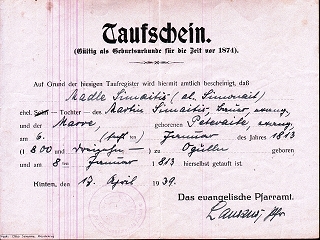 Taufschein.
(Gültig als Geburtsurkunde für die Zeit vor 1874).
Auf Grund der hiesigen Taufregister wird hiermit amtlich bescheinigt, daß
Madle Simaitis (al. Simonait)
ehel. Sohn — Tochter — des Martin Simaitis, Bauer, evang.
und der Marre, geborenen Petereite, evang.
am 6. ( ten) Januar des Jahres 1813
(1 800 und dreizehn) zu Ogullen geboren
und am 8 ten Januar 1 813 hierselbst getauft ist.
Kinten, den 17. April 1939.
Das evangelische Pfarramt.